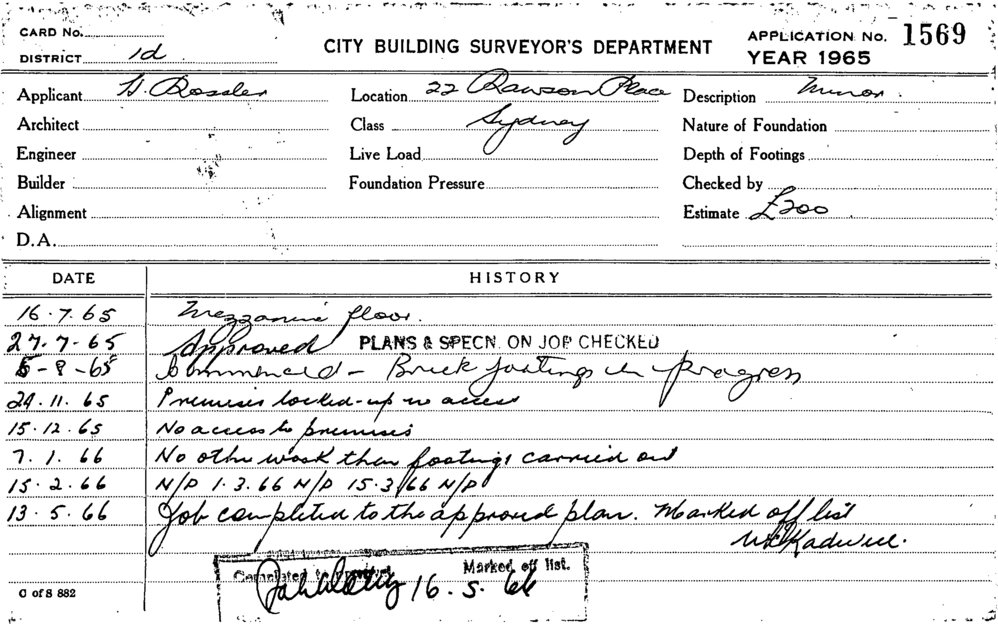 CARD No.
DISTRICT 1d
CITY BUILDING SURVEYOR'S DEPARTMENT
APPLICATION No. 1569
YEAR 1965
Applicant G. Rossler Location 22 Rawson Place Description Minor
Architect Class Sydney Nature of Foundation
Engineer Live Load Depth of Footings
Builder Foundation Pressure Checked by
Alignment Estimate £200
D.A.
DATE HISTORY
16.7.65 Mezzanine floor.
27.7-65 Approved PLANS & SPECN. ON JOB CHECKED
5-8-65 Commenced - Brick footings in progress
24.11.65 Premises locked-up no access
15.12.65 No access to premises
7.1.66 No other work than footings carried out
15.2.66 N/P 1.3.66 N/P 15.3.66 N/P
13.5.66 Job completed to the approved plan. Marked off list
Kadwell.
Completed Marked off list.
16.5.66
C of S 882